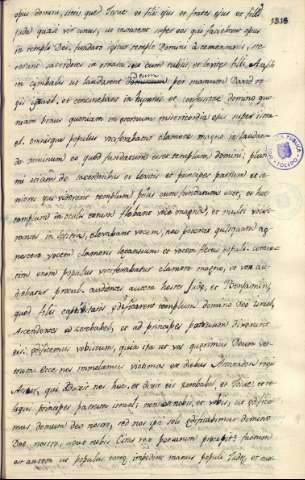 opus domini, stetit que Josue et filii ejus et fratres ejus et filii
Juda quasi vir unus, ut instarent super eos qui faciebant opus
in templo Dei; fundato igitur templo Domini a cementariis, ste-
terunt sacerdotes in ornatu suo cum tubis, et levitae filii Asaph
in cymbalis ut laudarent Deum per manum David re-
gis Israel, et concinebant in hymnis et confessione domino quo-
niam bonus quoniam in eternum misericordia ejus super isra-
el. omnisque populus vociferabatur clamore magno in laudan-
do dominum eo quod fundatum esset templum domini, pluri-
mi etiam de sacerdotibus et levitis et principes patrum et se-
niores qui viderant templum prius cum fundatum esset, et hoc
templum in oculis eorum flebant voce magna, et multi voci-
ferantes in letitia, elevabant vocem, nec poterat quisquam ag-
noscere vocem clamoris letantium et vocem fletus populi. commix-
tim enim populus vociferabatur clamore magno, et vox au-
diebatur procul. audierunt autem hostes Judae, et Benjamin,
quod filii captivitatis edificarent templum domino Deo israel,
Accendentes ad zorobabel, et ad principes patrum dixerunt
eis: edificemus vobiscum, quia ita ut vos querimus Deum ves-
trum ecce nos immolamus victimas a diebus Asor
Assur, qui adduxit nos huc, et dixit eis zorobabel, et Josue, et re-
liqui principes patrum israel, non est vobis, et nobis, ut edifice-
mus domum deo nostro, sed nos ipsi soli edificabimus domino
Deo nostro, sicut nobis Cirus rex persarum precepit; factum
est autem ut populus terre impediret manus populi Jude, et tur-
1313
TOLEDO